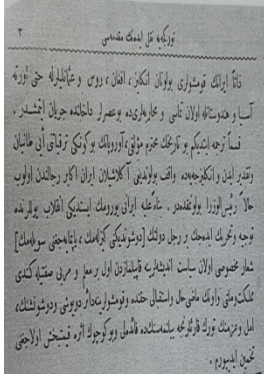 تورکجه‌یه نقل ایدنك مقدمه‌سی ٣
ذاتاً ایرانك قومشولری بولونان انکلیز، افغان، روس و عثمانلیلرله حتی اورته
آسیا و هندوستانله اولان تماسی و محاربه‌لری‌ده بو عصرلر داخلنده جریان ایتمشیدر.
قسماً ترجمه ایتدیکم بو تاریخك محترم مؤلفی، آوروپانك بوکونکی ترقیاتی آنی طانیان
و تقدیر ایدن و انکلیزجه‌یه‌ده واقف بولوندیغی آکلاشیلان ایران اکابر رجالندن اولوب
حالا رئیس الوزرا بولونمقده‌در. بناءً علیه ایرانی یورومك ایسته‌دیکی انقلاب یوللرنده
توجیه و تحریك ایده‌جك و رجل دولتك [دوشوندیکنی کیزله‌مك، یاپماجه‌غنی سویله‌مك]
شعار مخصوصی اولان سیاست اندیشه‌لرینه قاپیلمازدن اول بر معلم و مربی صفتیله کندی
مملکت و ملتی و اونك ماضی، حال و استقبالی حقنده و قومشولرینه دائر دویوشی و دوشونشنك،
امل و عزمنك تورك قارئلرنجه بیلنمسنك‌ده فائده‌لی و بو کوچوك اثره قیمتبخش اولاجغنی
تخمین ایدییورم.